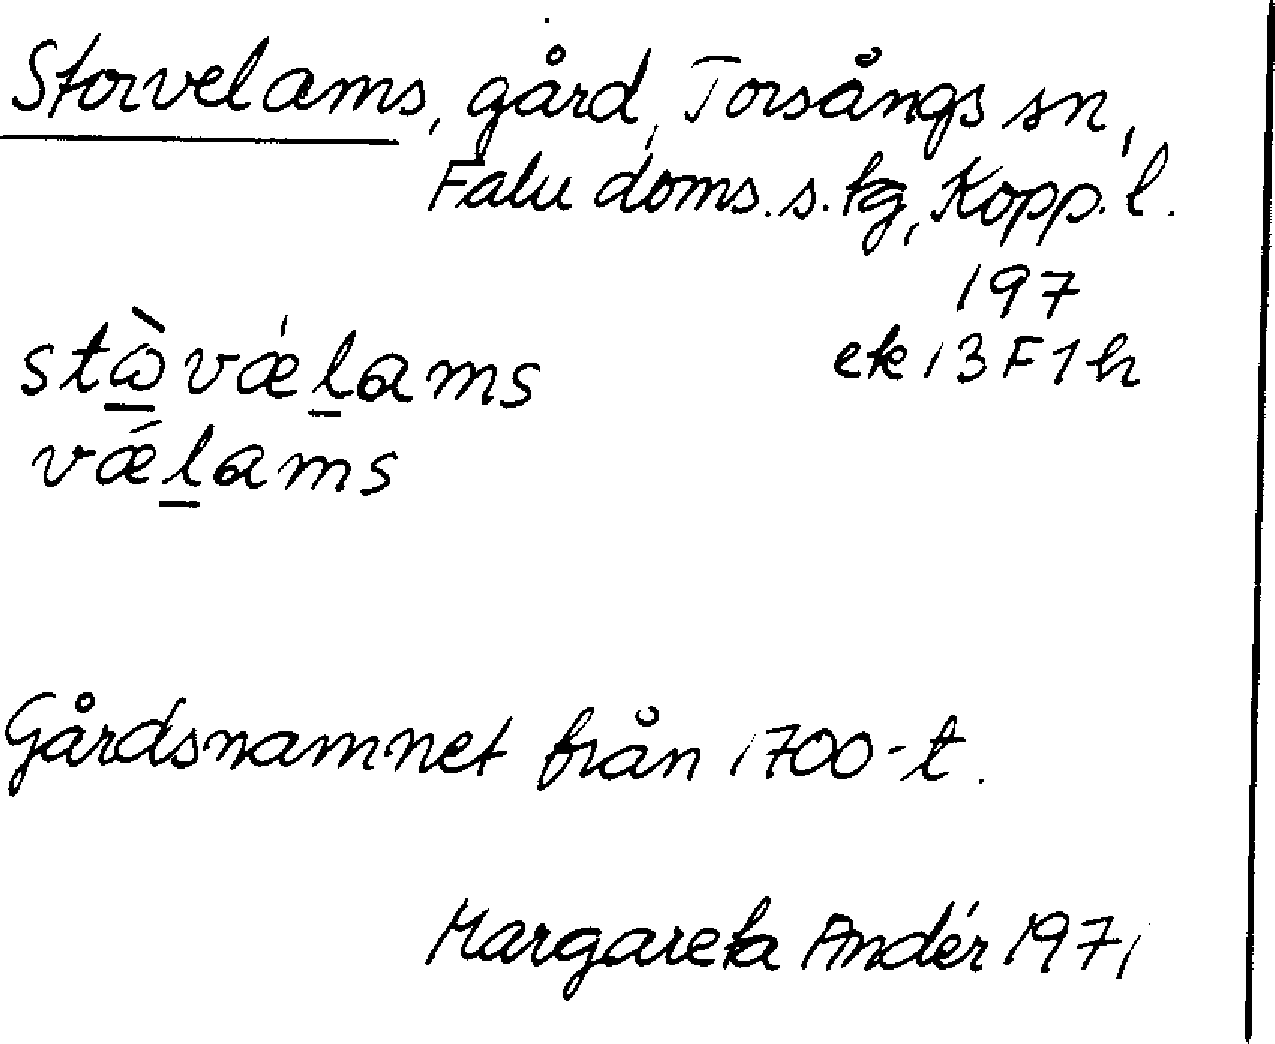 Storvelams, gård, Torsångs sn,
Falu doms. s. tg, Kopp. l.
197
ek 13 F 1 h
stὼvæ̍lams
vǽlams
Gårdsnamnet från 1700-t.
Margareta Andér 1971